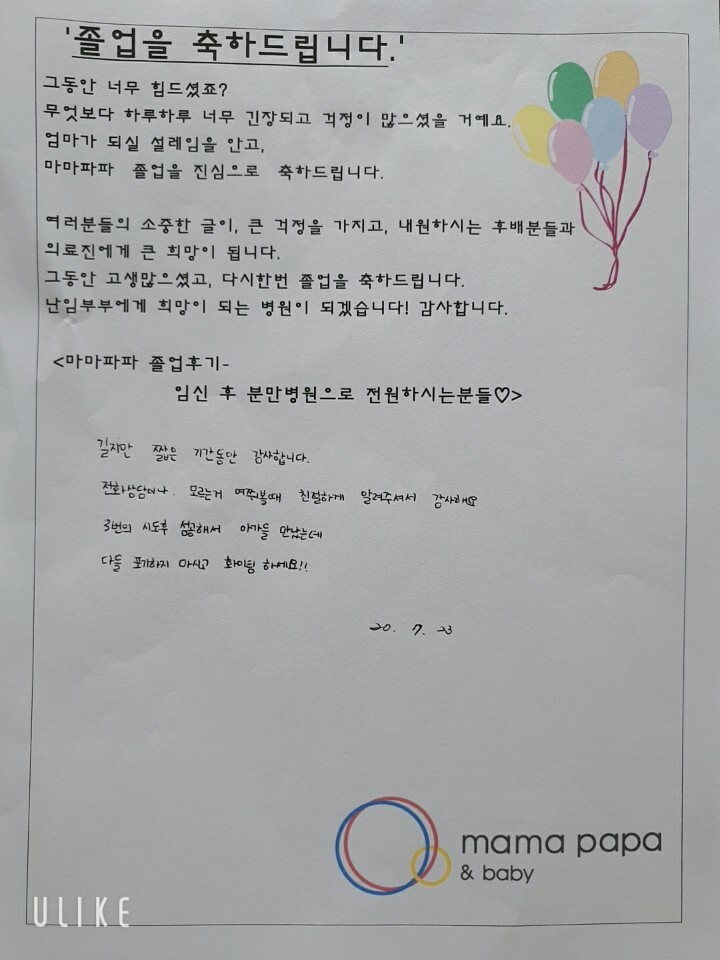 '졸업을 축하드립니다.'
그동안 너무 힘드셨죠?
무엇보다 하루하루 너무 긴장되고 걱정이 많으셨을 거예요.
엄마가 되실 설레임을 안고,
마마파파 졸업을 진심으로 축하드립니다.
여러분들의 소중한 글이, 큰 걱정을 가지고, 내원하시는 후배분들과
의료진에게 큰 희망이 됩니다.
그동안 고생많으셨고, 다시한번 졸업을 축하드립니다.
난임부부에게 희망이 되는 병원이 되겠습니다! 감사합니다.
<마마파파 졸업후기-
임신 후 분만병원으로 전원하시는분들♡>
길지만 짧은 기간동안 감사합니다.
전화상담이나. 모르는거 여쭤볼때 친절하게 알려주셔서 감사해요
3번의 시도후 성공해서 아가들 만났는데
다들 포기하지 마시고 화이팅 하세요!!
20. 7. 23
mama papa
& baby
ULIKE